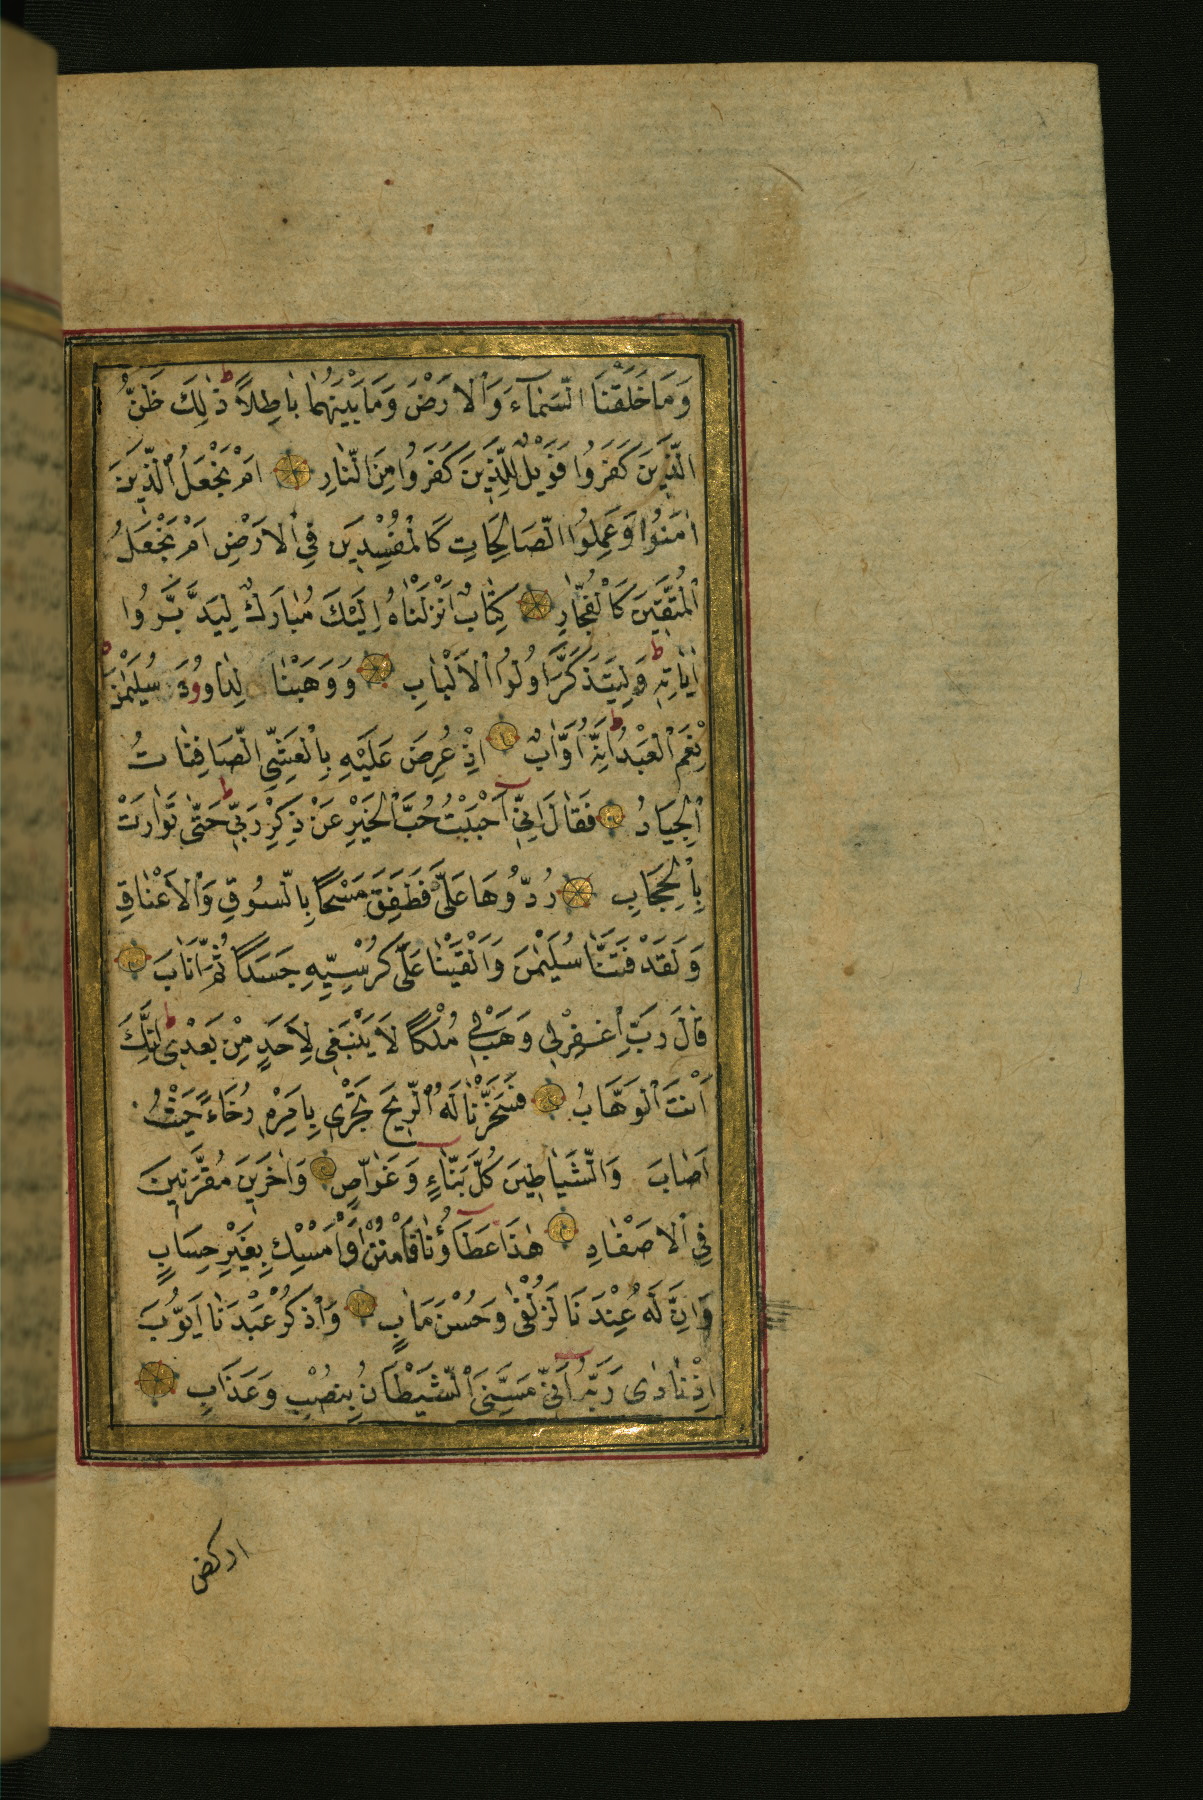 وَمَا خَلَقْنَا السَّمَاءَ وَالْاَرْضَ وَمَا بَيْنَهُمَا بَاطِلًا ط ذٰلِكَ ظَنُّ
الَّذِينَ كَفَرُوا فَوَيْلٌ لِلَّذِينَ كَفَرُوا مِنَ النَّارِ اَمْ نَجْعَلُ الَّذِينَ
اٰمَنُوا وَعَمِلُوا الصَّالِحَاتِ كَالْمُفْسِدِينَ فِي الْاَرْضِ اَمْ نَجْعَلُ
الْمُتَّقِينَ كَالْفُجَّارِ كِتَابٌ اَنْزَلْنَاهُ اِلَيْكَ مُبَارَكٌ لِيَدَّبَّرُوا
اٰيَاتِهِ ط وَلِيَتَذَكَّرَ اُولُوا الْاَلْبَابِ وَوَهَبْنَا لِدَاوُودَ سُلَيْمٰنَ
نِعْمَ الْعَبْدُ ط اِنَّهُ اَوَّابٌ اِذْ عُرِضَ عَلَيْهِ بِالْعَشِيِّ الصَّافِنَاتُ
الْجِيَادُ فَقَالَ اِنِّي اَحْبَبْتُ حُبَّ الْخَيْرِ عَنْ ذِكْرِ رَبِّي ط حَتّٰى تَوَارَتْ
بِالْحِجَابِ رُدُّوهَا عَلَيَّ فَطَفِقَ مَسْحًا بِالسُّوقِ وَالْاَعْنَاقِ
وَلَقَدْ فَتَنَّا سُلَيْمٰنَ وَاَلْقَيْنَا عَلٰى كُرْسِيِّهِ جَسَدًا ثُمَّ اَنَابَ
قَالَ رَبِّ اغْفِرْلِي وَهَبْ لِي مُلْكًا لَا يَنْبَغِي لِاَحَدٍ مِنْ بَعْدِي ط اِنَّكَ
اَنْتَ الْوَهَّابُ فَسَخَّرْنَا لَهُ الرِّيحَ تَجْرِي بِاَمْرِهِ رُخَاءً حَيْثُ
اَصَابَ وَالشَّيَاطِينَ كُلَّ بَنَّاءٍ وَغَوَّاصٍ وَاٰخَرِينَ مُقَرَّنِينَ
فِي الْاَصْفَادِ هٰذَا عَطَاؤُنَا فَامْنُنْ اَوْ اَمْسِكْ بِغَيْرِ حِسَابٍ
وَاِنَّ لَهُ عِنْدَنَا لَزُلْفٰى وَحُسْنَ مَاٰبٍ وَاذْكُرْ عَبْدَنَا اَيُّوبَ
اِذْ نَادٰى رَبَّهُ اَنِّي مَسَّنِيَ الشَّيْطَانُ بِنُصْبٍ وَعَذَابٍ
اركض